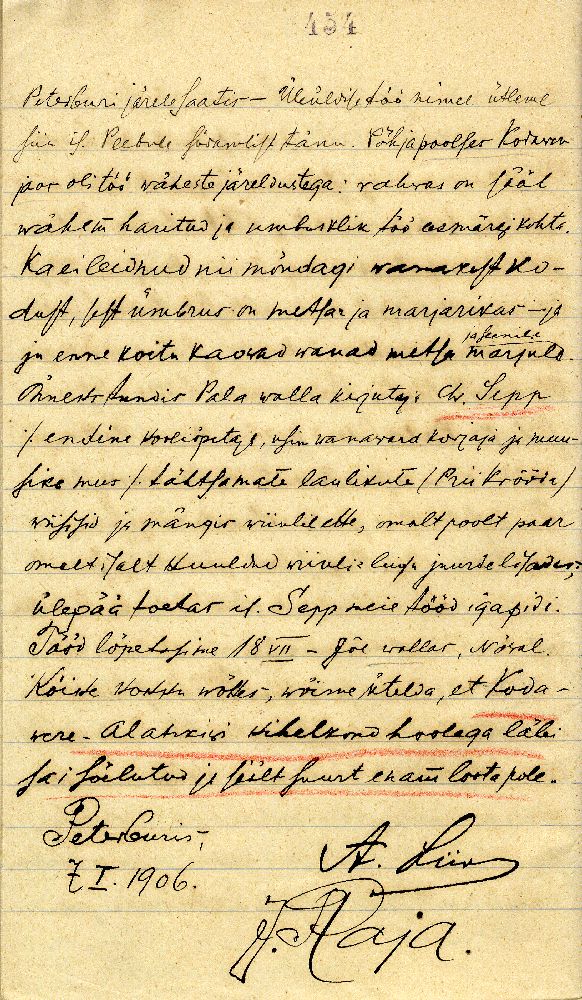 454
Peterburi järele saatis — Üleüldise töö nimel ütleme
siin is. Peebule südamlist tänu. Põhjapoolses Kodavere
jaos oli töö wäheste järeldustega: rahwas on sääl
wähem haritud ja umbusklik töö eesmärgi kohta.
Ka ei leidnud nii mõndagi wanakest ko-
dust, sest ümbrus on metsa ja marjarikas — ja
ju enne koitu kaowad wanad metsa marjule.
ja seenele
Õnneks andis Pala walla kirjutaja Chr. Sepp
/. endine kooliõpetaja, usin wanawara korjaja ja muu-
sika mees /. tähtsamate laulikute (Prii Krõõda)
wiisisid ja mängis wiiulil ette, omalt poolt paar
omalt isalt kuuldud wiiuli lugu juurde lisades;
ülepää toetas is. Sepp meie tööd igapidi.
Tööd lõpetasime 18 VII — Jõe wallas, Nõval.
Kõiki kokku wõttes, wõime ütelda, et Koda-
were - Alatskiwi kihelkond hoolega läbi
sai sõelutud ja säält suurt enam loota pole.
Peterburis,
7 I. 1906.
A. Liiw
J. Raja.